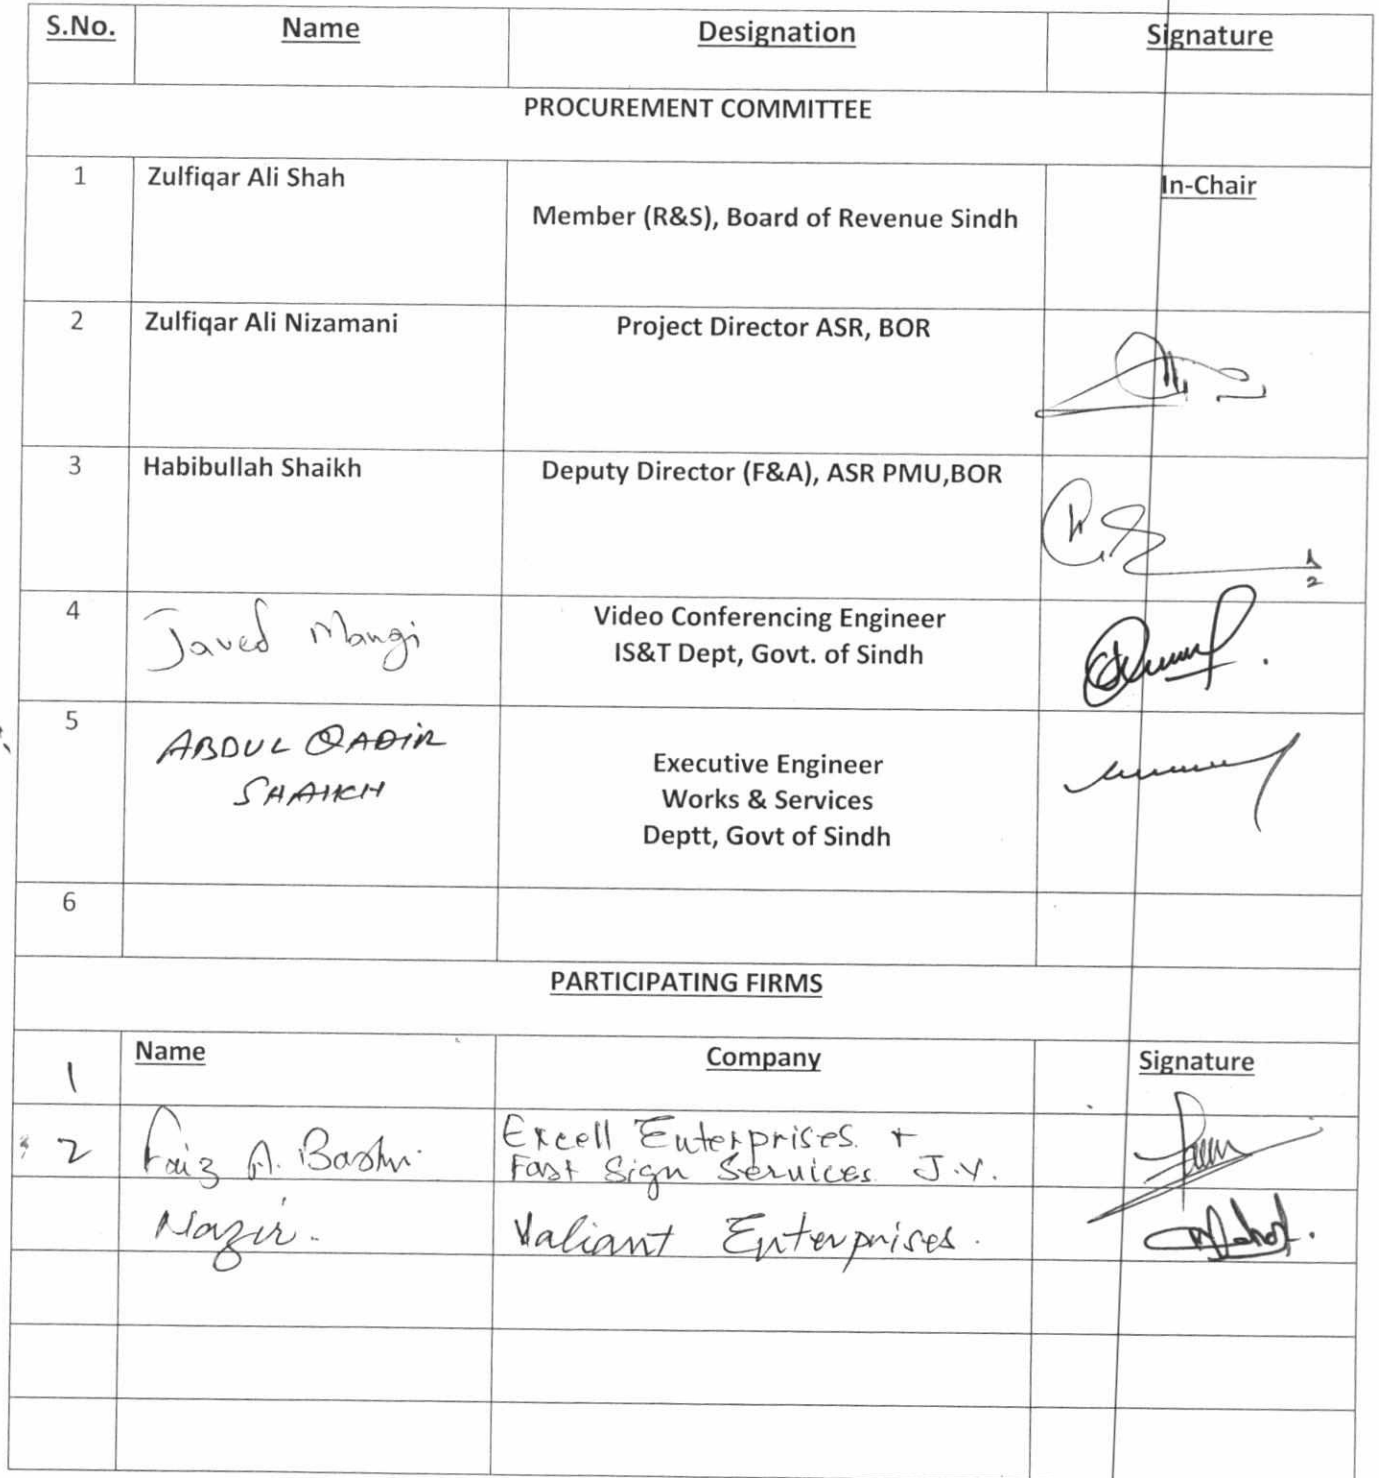 S.No. Name Designation Signature
PROCUREMENT COMMITTEE
1 Zulfiqar Ali Shah In-Chair
Member (R&S), Board of Revenue Sindh
2 Zulfiqar Ali Nizamani Project Director ASR, BOR
3 Habibullah Shaikh Deputy Director (F&A), ASR PMU,BOR
4 Javed Mangi Video Conferencing Engineer
IS&T Dept, Govt. of Sindh
5 ABDUL QADIR
SHAIKH
Executive Engineer
Works & Services
Deptt, Govt of Sindh
6
PARTICIPATING FIRMS
1 Name Company Signature
2 Faiz A. Bashir. Excell Enterprises +
Fast Sign Services J.V.
Nazir. Valiant Enterprises.